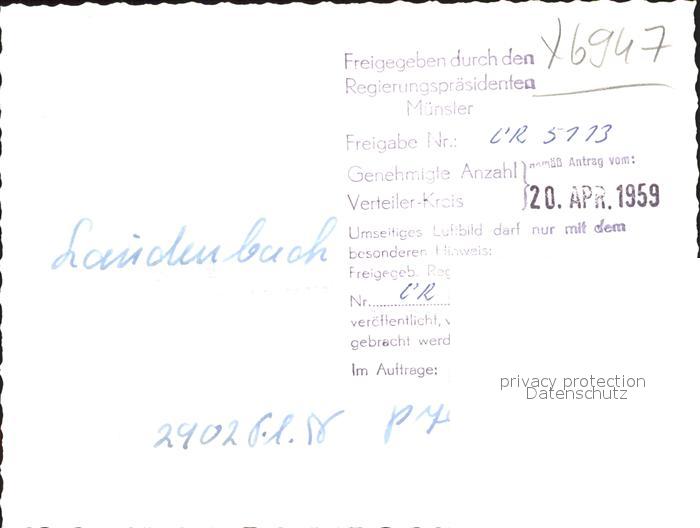 X6947
Freigegeben durch den
Regierungspräsidenten
Münster
Freigabe Nr.: CR 5113
Genehmigte Anzahl } gemäß Antrag vom:
Verteiler-Kreis } 20. APR. 1959
Umseitiges Luftbild darf nur mit dem
besonderen Hinweis:
Laudenbach
Freigegeb. Reg
Nr. CR
veröffentlicht, v
gebracht werd
Im Auftrage:
privacy protection
Datenschutz
2902